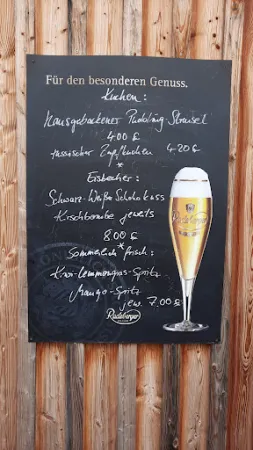 Für den besonderen Genuss.
Kuchen:
Hausgebackener Pudding Streusel
4.00 €
russischer Zupfkuchen 4.20 €
*
Eisbecher:
Schwarz-Weißer Schoko
Kirschbombe jeweils
8.00 €
*
Sommerlich frisch:
Kiwi-Lemongras-Spritz
Mango-Spritz
jew. 7.00 €
Radeberger
Radeberger